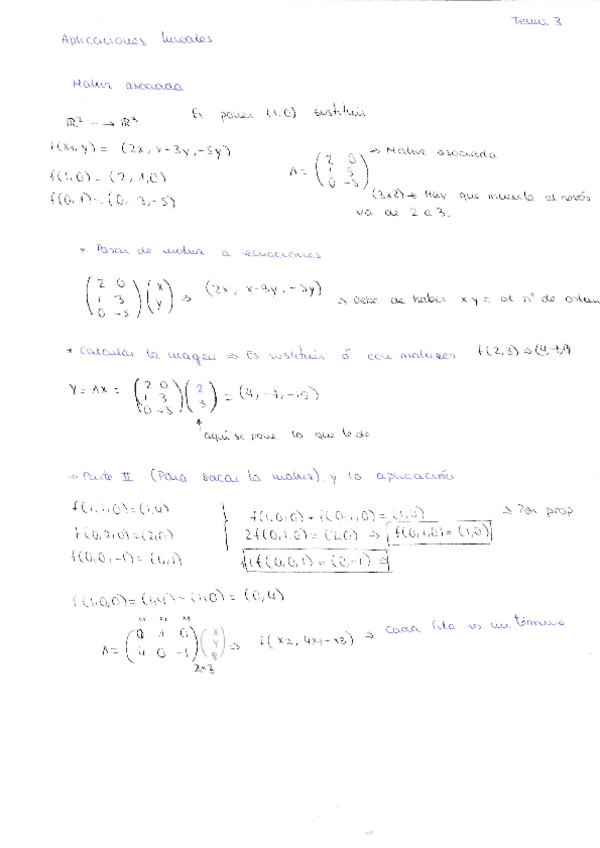 Tema 3
Aplicaciones lineales
Matriz asociada
ℝ² → ℝ³ Es poner (1,0) sustituir
f(x,y) = (2x, x-3y, -5y)
f(1,0) = (2,1,0)
f(0,1) = (0,-3,-5)
A = (2 0 / 1 3 / 0 -5) → Matriz asociada
(3x2) → Hay que al revés
va de 2 a 3.
* Pasar de matriz a ecuaciones
(2 0 / 1 3 / 0 -5) (x / y) ⇒ (2x, x-3y, -5y) → Debe de haber x y = al nº de
* Calcular la imagen ⇒ Es sustituir ó con matrices f(2,3) ⇒
Y = AX = (2 0 / 1 3 / 0 -5) (2 / 3) = (4, -7, -15)
aquí se pone lo que te de
→ Parte II (Para sacar la matriz) y la aplicación
f(1,1,0) = (1,4)
f(0,2,0) = (2,0)
f(0,0,-1) = (0,1)
f(1,0,0) + f(0,1,0) = (1,0) → Por prop
2f(0,1,0) = (2,0) ⇒ f(0,1,0) = (1,0)
f(0,0,1) = (0,-1) ⇒
f(1,0,0) = (1,4) - (1,0) = (0,4)
A = (0 1 0 / 4 0 -1) (x / y / z) ⇒ f(x2, 4x1-x3) ⇒ Cada fila es un término
2x3